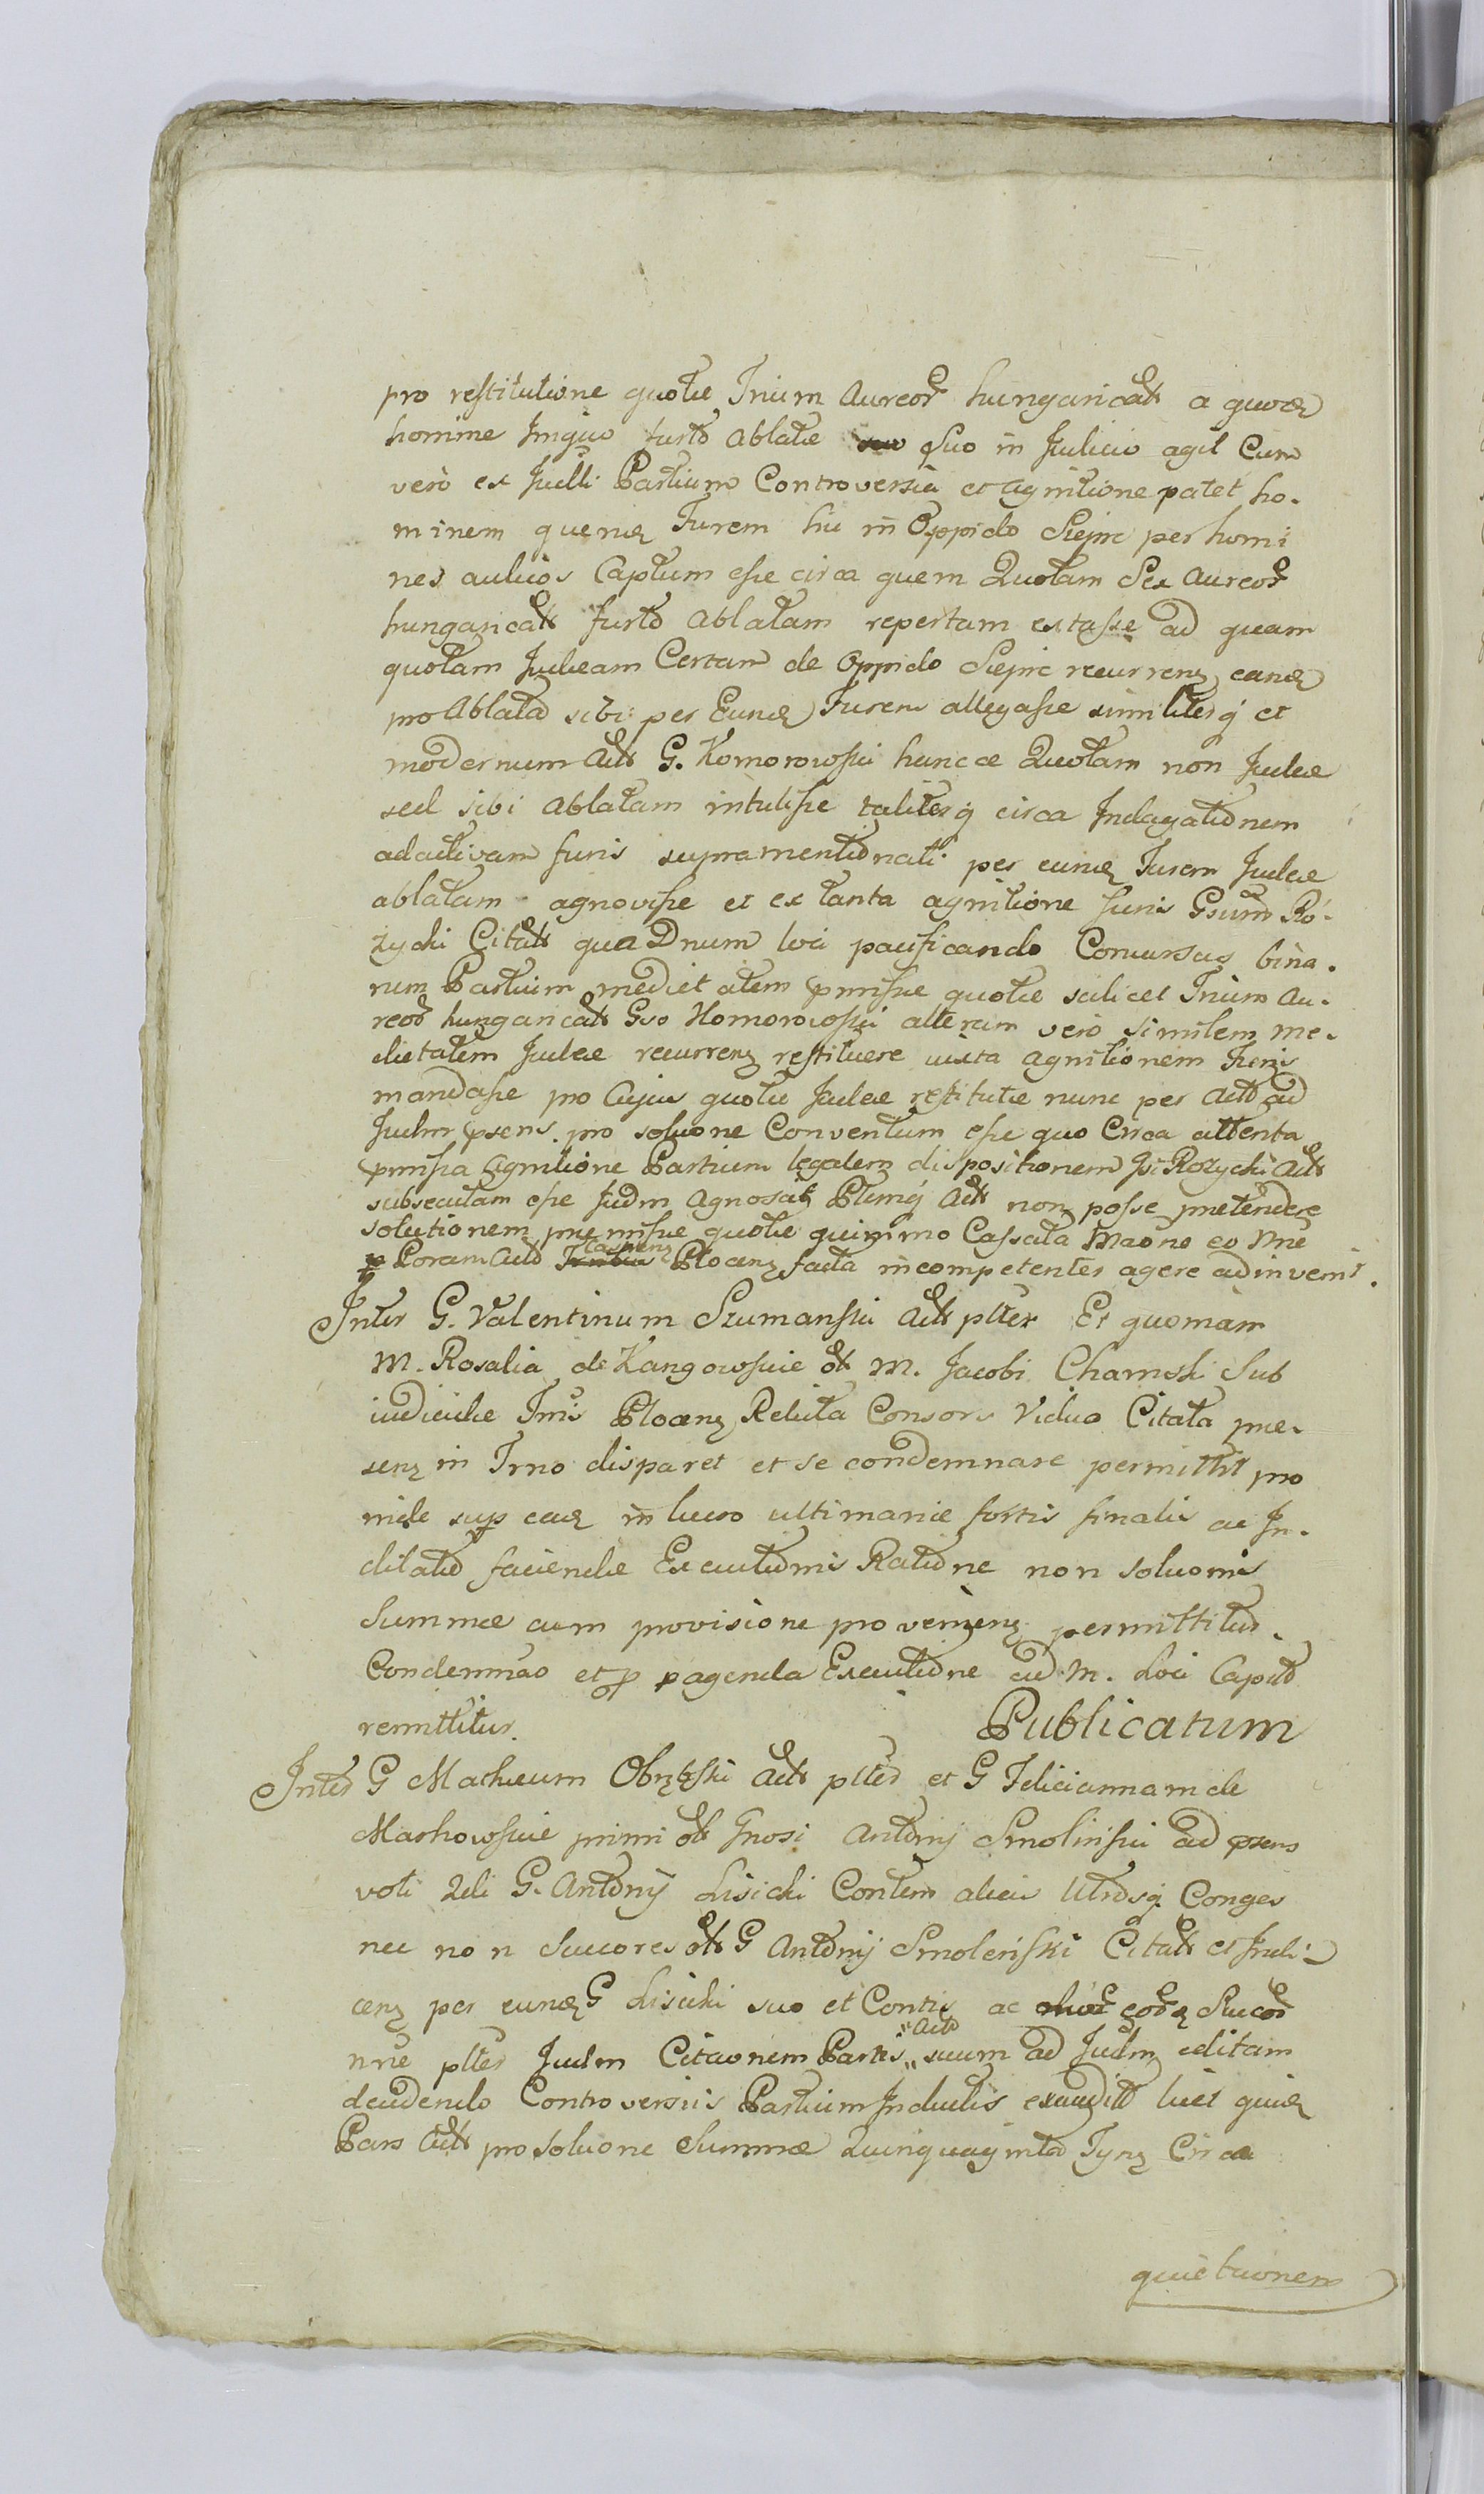 pro restitutione quotæ Trium Aureor hungaricał a quodam
homine furto Ablatæ suo in Judicio agit Cum
verò ex Partium Controversia et agnitione patet ho-
minem Furem hic in Oppido Sierpc per homi
nes aulicos Captum esse circa quem Quotam Sex Aureor
hungaricał furto Ablatam repertam extasse ad quam
quotam Judæam Certam de Oppido Sierpc recurren
pro Ablata sibi per Furem allegasse similiterq et
modernum Act G. Komorowski Quotam non Judæe
sed sibi Ablatam intulisse taliterq circa Indagationem
furis supra mentionati per Furem Judæe
ablatam agnovisse et ex tanta agnitione furis Gsum Ró-
życki Citał qua Dnum loci pacificando Concursus bina-
rum Partium medietatem pmissæ quotæ scilicet Trium Au-
reor hungaricał Gso Komorowski alteram verò similem me-
dietatem Judæe recurren restituere iuxta agnitionem Furis
mandasse pro Cujus quotæ Judæe restitutæ nunc per Act ad
Judm psens pro soluone Conventum esse quo Circa attenta
pmissa Agnitione Partium legalem dispositionem Gi Rożycki Act
subsecutam esse Judm Agnoscit Act non posse prætendere
solutionem præmissæ quotæ quinimo Cassata
Act Castren Plocen facta incompetenter agere adinvenit.
Inter G. Valentinum Szumanski Act plter Et quoniam
M. Rosalia de Kangowskie M. Jacobi Chamski Sub
iudicidæ Plocen Relicta Consors Vidua Citata præ-
sen in Trno disparet et se condemnare permittit pro
inde sup in lucro ultimariæ fortis finalis ac In-
dilatæ faciendæ Executionis Ratione non soluonis
Summæ cum provisione provenien permittitur.
Condemnao et p peragenda Executione ad M. Loci Capit
remittitur. Publicatum
Inter G Mathæum Obrębski Act plter et G Feliciannam de
Markowskie primi Gnosi Antonij Smolinski ad psens
voti 2di G. Antonij Lisicki Contem alias Utriusq Conges
nec non Succores G Antonij Smoleński Citał et Judi-
cen per G Lisicki suo et Contis ac Succor
nne plter Judm Citaonem Partis " Act " suum ad Judm editam
Controversiis Partium Inductis licet
Pars Act pro soluone Summæ Quinquaginta Circa
quietuonem